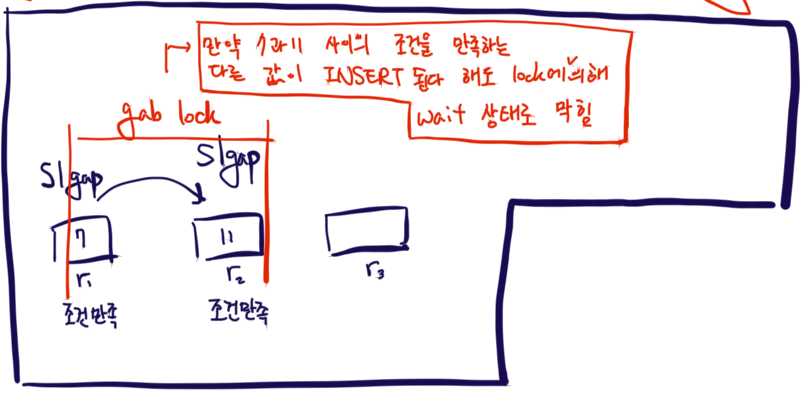 만약 7과 11 사이의 조건을 만족하는
다른 값이 INSERT 된다 해도 lock에 의해
wait 상태로 막힘
gab lock
S|gap
S|gap
7
11
r₁
r₂
r₃
조건만족
조건만족